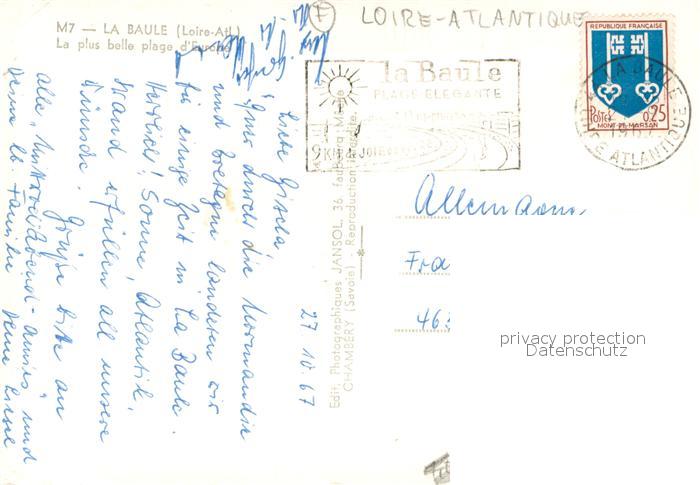 M7 — LA BAULE (Loire-Atl.)
La plus belle plage d'Europe
F
LOIRE-ATLANTIQUE
la Baule
PLAGE ELEGANTE
9 Km de
REPUBLIQUE FRANÇAISE
POSTES 0,25
MONT-DE-MARSAN
LA BAULE
LOIRE ATLANTIQUE
Allemagne
Fra
463
privacy protection
Datenschutz
Edit. Photographiques JANSOL, 36, faubourg Maché
CHAMBÉRY (Savoie) - Reproduction interdite.
27 10 67
Liebe Gisela
Quer durch die Normandie
und Bretagne landeten wir
für einige Zeit in La Baule.
Herrlich! Sonne, Atlantik,
Strand erfüllen all unsere
Wünsche! Grüße bitte an
alle und
Deine lb. Familie Deine